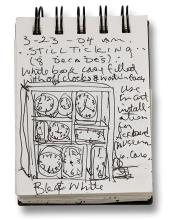 3-23-04 am.
STILL TICKING..
(8 DECADES).
White book case filled
with old clocks & working
Use
in art
install
ation
for
museum
Black White